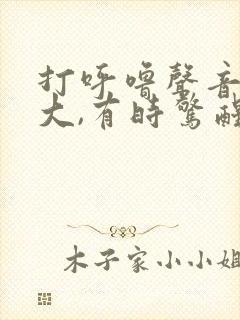 打呼噜聲音
大,有時驚醒
木子家小小姐